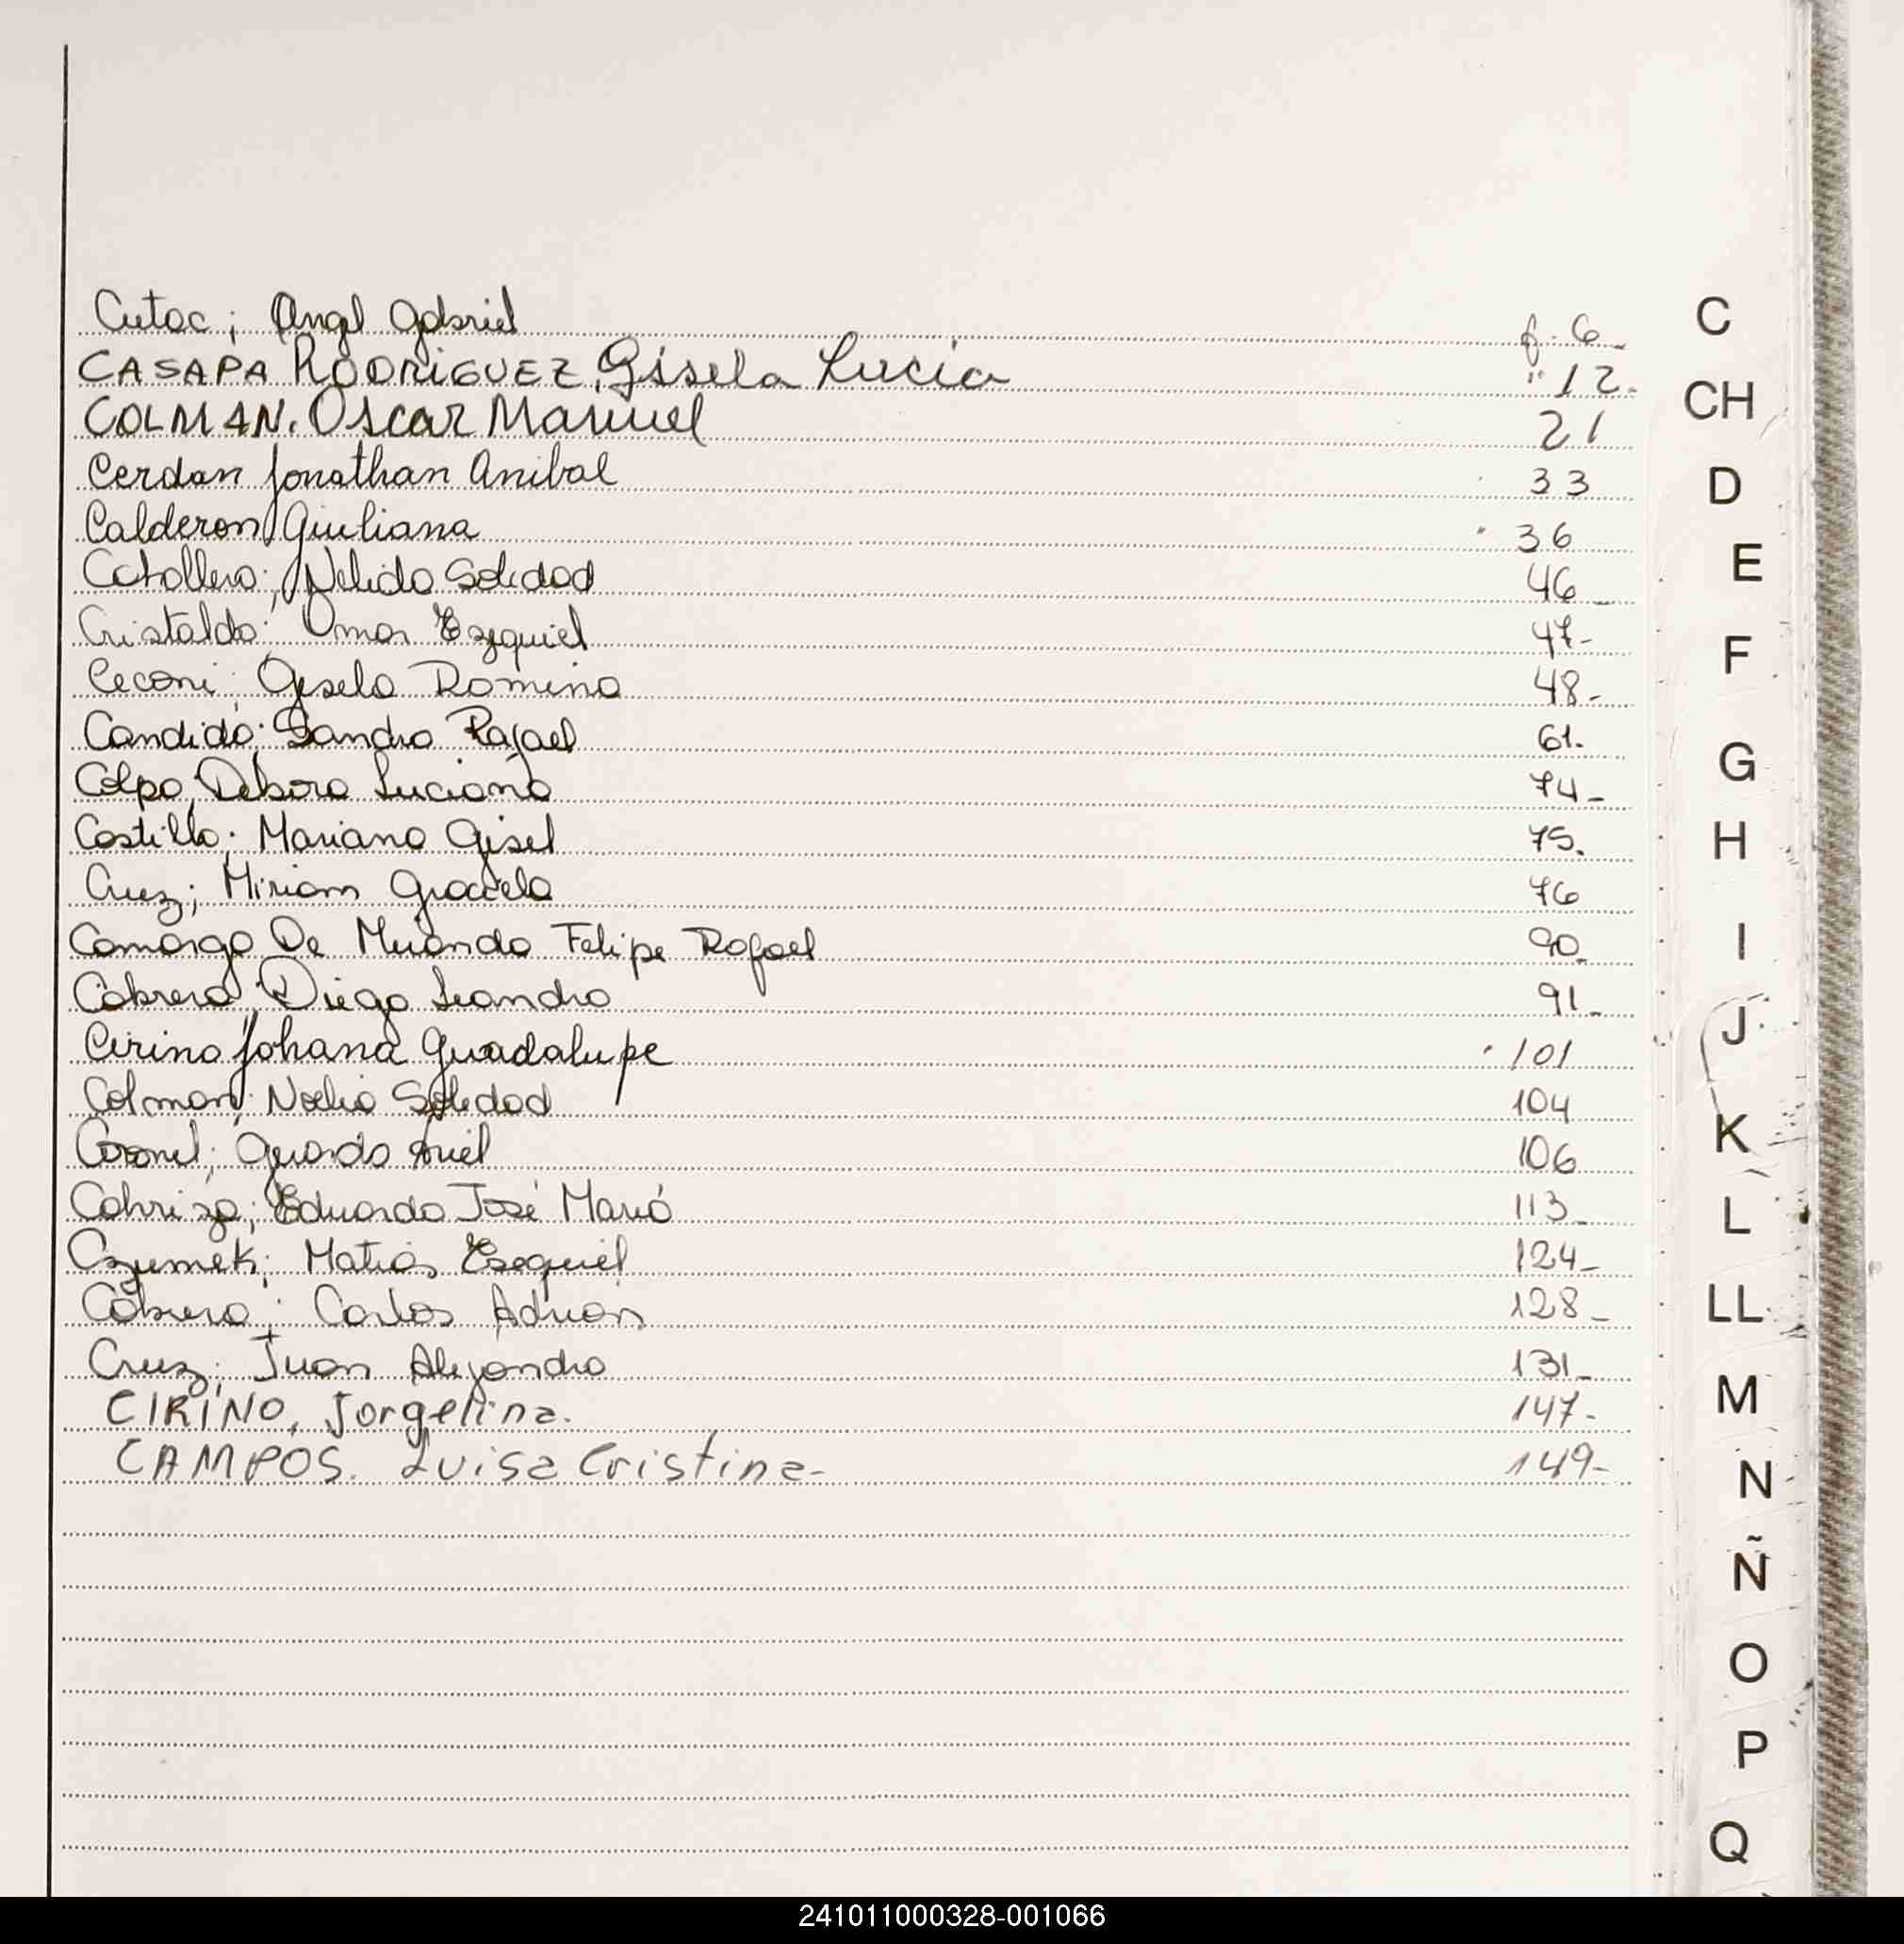 Cutac; Angel Gabriel f. 6
CASAPA RODRIGUEZ, Gisela Lucia " 12-
COLMAN. Oscar Manuel 21
Cerdan Jonathan Anibal 33
Calderon Giuliana 36
Nelida Soledad 46
Cristaldo; Omar Ezequiel 47-
Ceconi; Gisela Romina 48-
Candido; Sandro Rafael 61.
Colpo; Debora Luciana 74-
Costilla; Mariana Gisel 75.
Cruz; Miriam Graciela 76
Camargo De Miranda Felipe Rafael 90-
Cabrera; Diego Leandro 91-
Cirino Johana Guadalupe 101
Colman; Noelia Soledad 104
Coronel; Gerardo Ariel 106
Eduardo José María 113-
Czumek; Matias Esequiel 124-
Cabrera; Carlos Adrian 128-
Cruz; Juan Alejandro 131-
CIRINO, Jorgelina. 147-
CAMPOS. Luisa Cristina- 149-
C
CH
D
E
F
G
H
I
J
K
L
LL
M
N
Ñ
O
P
Q
241011000328-001066